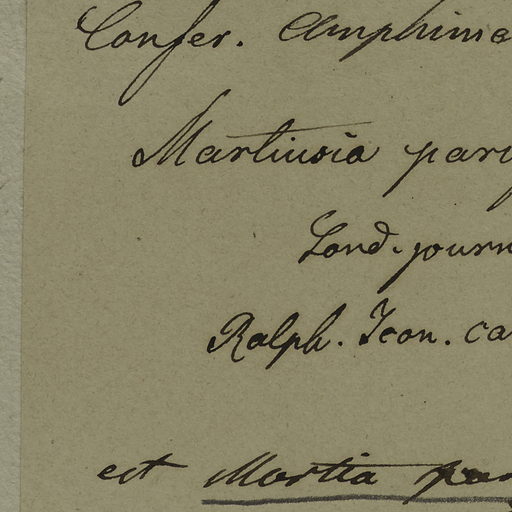 Confer. Amphime
Martiusia par
Lond. journ
Ralph. Icon. ca
est Martia par